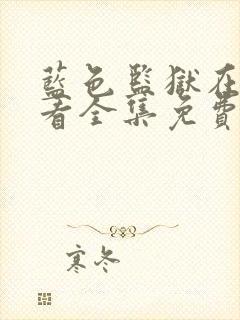 藍色監獄在
看全集免費
寒冬